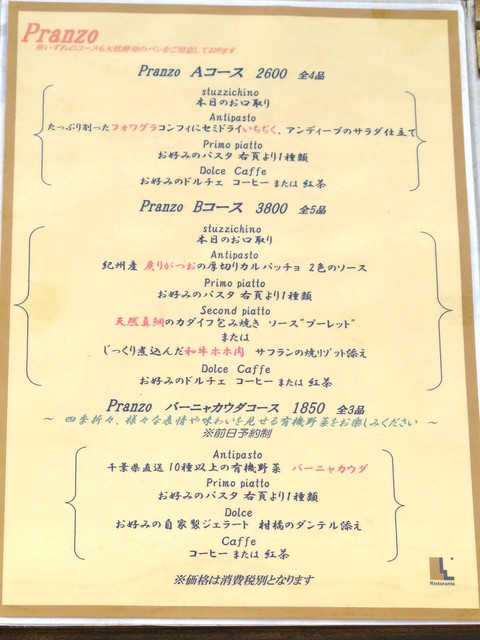 Pranzo
※いずれのコースも天然酵母のパンをご用意しております
Pranzo Aコース 2600 全4品
stuzzichino
本日のお口取り
Antipasto
たっぷり削ったフォワグラコンフィにセミドライいちじく、アンディーブのサラダ仕立て
Primo piatto
お好みのパスタ 右頁より1種類
Dolce Caffe
お好みのドルチェ コーヒー または 紅茶
Pranzo Bコース 3800 全5品
stuzzichino
本日のお口取り
Antipasto
紀州産 戻りがつおの厚切りカルパッチョ 2色のソース
Primo piatto
お好みのパスタ 右頁より1種類
Second piatto
天然真鯛のカダイフ包み焼き ソース"プーレット"
または
じっくり煮込んだ和牛ホホ肉 サフランの焼リゾット添え
Dolce Caffe
お好みのドルチェ コーヒー または 紅茶
Pranzo バーニャカウダコース 1850 全3品
～ 四季折々、様々な表情や味わいを見せる有機野菜をお楽しみください ～
※前日予約制
Antipasto
千葉県直送 10種以上の有機野菜 バーニャカウダ
Primo piatto
お好みのパスタ 右頁より1種類
Dolce
お好みの自家製ジェラート 柑橘のダンテル添え
Caffe
コーヒー または 紅茶
※価格は消費税別となります
Ristorante